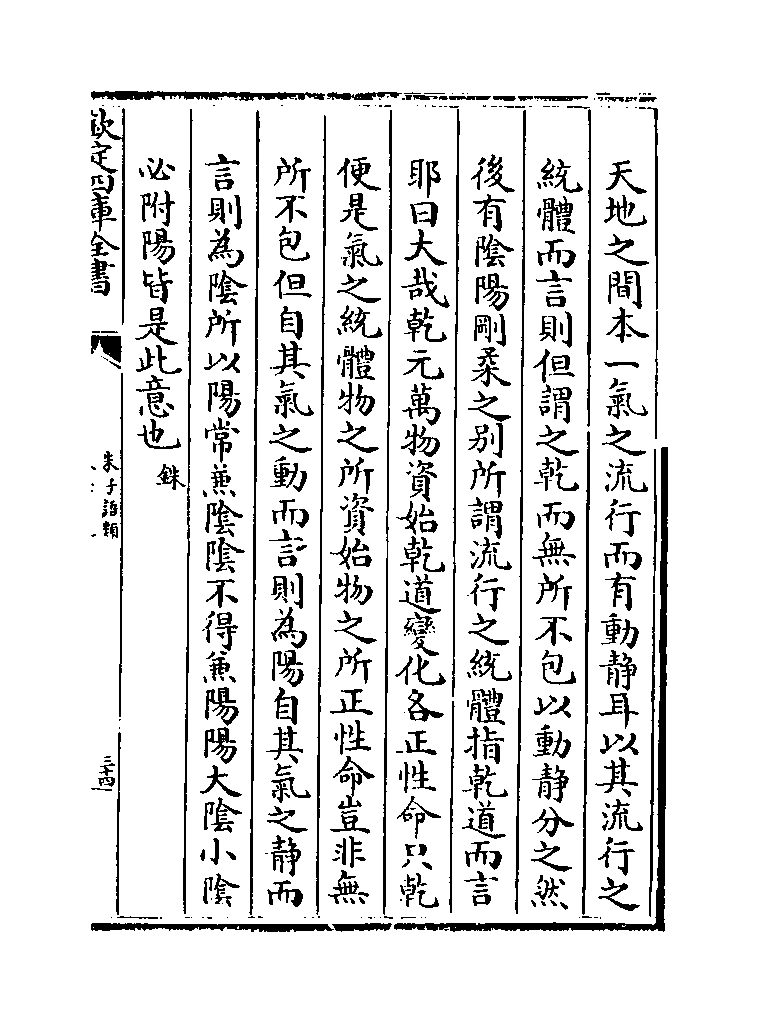 天地之間本一氣之流行而有動静耳以其流行之
統體而言則但謂之乾而無所不包以動静分之然
後有陰陽剛柔之别所謂流行之統體指乾道而言
耶曰大哉乾元萬物資始乾道變化各正性命只乾
便是氣之統體物之所資始物之所正性命豈非無
所不包但自其氣之動而言則為陽自其氣之静而
言則為陰所以陽常兼陰陰不得兼陽陽大陰小陰
必附陽皆是此意也銖
欽定四庫全書
朱子語類
三十四